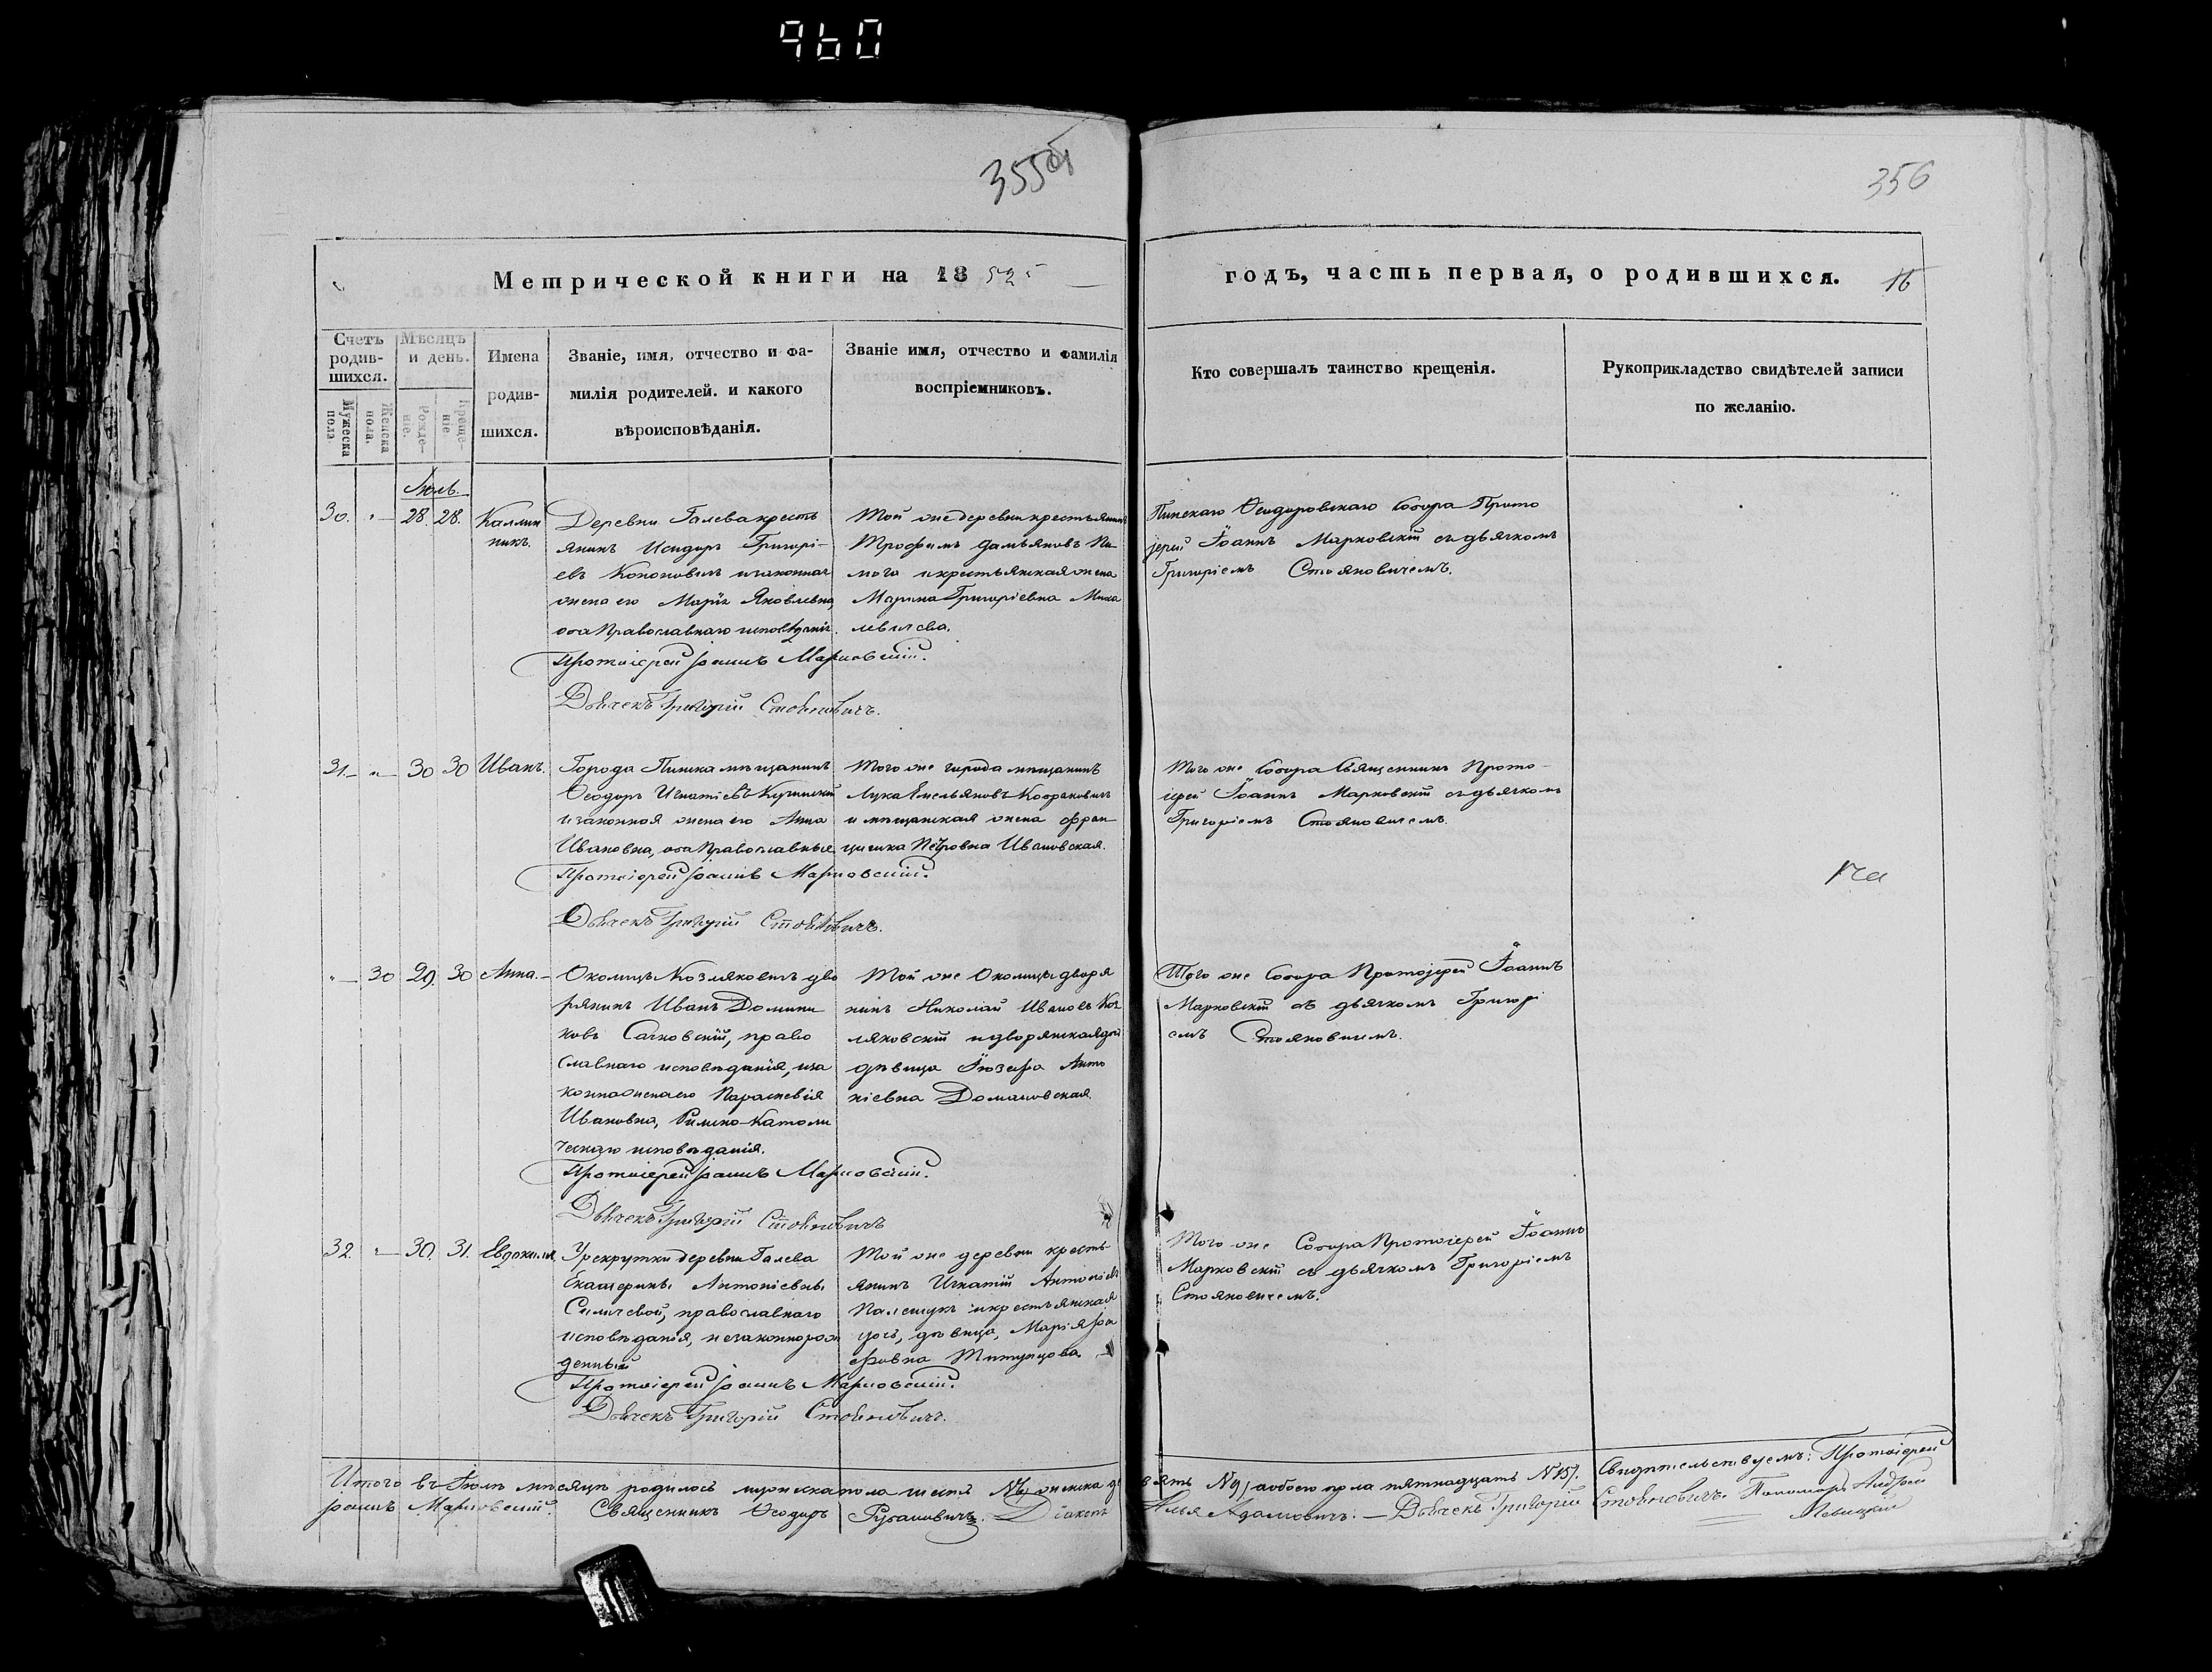 960
355об
356
Метрической книги на 1852
годъ, часть первая, о родившихся. 16
Счетъ родив-шихся.
Мужеска пола.
Женска пола.
Мѣсяцъ и день.
Рожде-ніе.
Креще-ніе
Имена родив-шихся.
Званіе, имя, отчество и фа-
милія родителей. и какого
вѣроисповѣданія.
Званіе имя, отчество и фамилія
воспріемниковъ.
Кто совершалъ таинство крещенія.
Рукоприкладство свидѣтелей записи
по желанію.
Іюль.
30. 28. 28. Каллин
никъ.
Деревни Галева кресть
янинъ Исидоръ Григорі-
евъ Кононовичъ и законная
жена его Марія Яковлевна,
оба Православнаго исповѣданія.
Протоіерей Іоаннъ Марковскій.
Дьячекъ Григорій Стояновичъ.
Той же деревни крестьянинъ
Трофимъ Дамьяновъ
и крестьянская жена
Марина Григоріевна Миха
левичева.
Пинскаго Ѳеодоровскаго Собора Прото
іерей Іоаннъ Марковскій съ дьячкомъ
Григоріемъ Стояновичемъ.
31. 30 30 Иванъ.
Города Пинска мѣщанинъ
Ѳеодоръ Игнатіевъ
и законная жена его Анна
Ивановна, оба Православные
Протоіерей Іоаннъ Марковскій.
Дьячекъ Григорій Стояновичъ.
Того же города мѣщанинъ
Лука Емельяновъ
и мѣщанская жена Фран
цишка Петровна Ивановская.
Того же Собора Священникъ Прото-
іерей Іоаннъ Марковскій съ дьячкомъ
Григоріемъ Стояновичемъ.
30 29. 30 Анна.
Околицы Козляковичъ дво
рянинъ Иванъ Домини
ковъ Сачковскій, право
славнаго исповѣданія, и за
конная жена его Параскевія
Ивановна, Римско-Католи
ческаго исповѣданія.
Протоіерей Іоаннъ Марковскій.
Дьячекъ Григорій Стояновичъ
Той же Околицы дворя
нинъ Николай Ивановъ Коз
ляковскій и дворянская дочь
дѣвица Іозефа Анто
ніевна Домановская.
Того же Собора Протоіерей Іоаннъ
Марковскій съ дьячкомъ Григорі
емъ Стояновичемъ.
32. 30. 31. Евдокимъ
У рекрутки деревни Галева
Екатерины Антоніевны
Силичевой, православнаго
исповѣданія, незаконнорож
денный
Протоіерей Іоаннъ Марковскій.
Дьячекъ Григорій Стояновичъ.
Той же деревни кресть
янинъ Игнатій Антоніевъ
Палещукъ и крестьянская
дочь, дѣвица, Марія
Того же Собора Протоіерей Іоаннъ
Марковскій съ дьячкомъ Григоріемъ
Стояновичемъ.
Итого въ Іюлѣ мѣсяцѣ родилось мужеска пола шесть N 6, женска де
вять N 9, а обоего пола пятнадцать N 15. Свидѣтельствуемъ: Протоіерей
Іоаннъ Марковскій. Священникъ Ѳеодоръ Рубановичъ. Діаконъ
Илья Адамовичъ. — Дьячекъ Григорій Стояновичъ. Пономарь Андрей
Левицкій